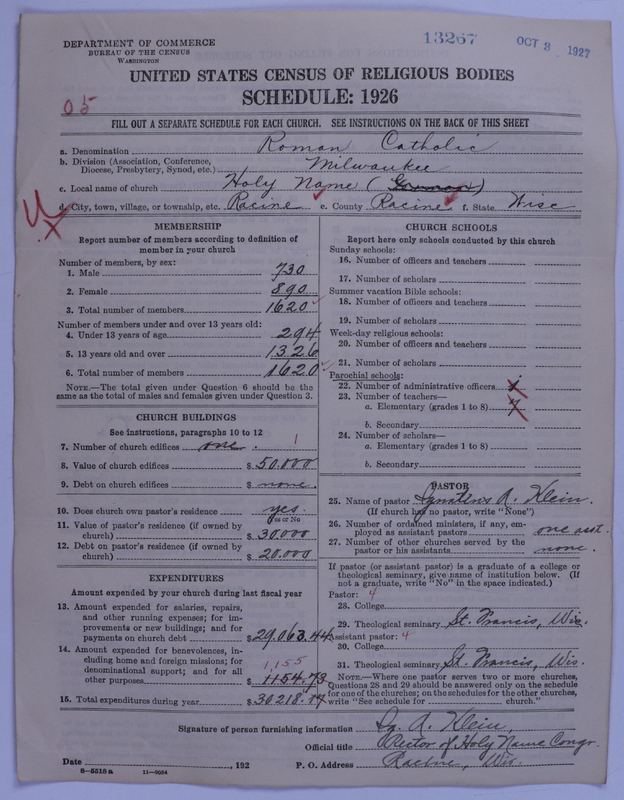 DEPARTMENT OF COMMERCE
BUREAU OF THE CENSUS
WASHINGTON
13267
OCT 3 1927
UNITED STATES CENSUS OF RELIGIOUS BODIES
SCHEDULE: 1926
05
FILL OUT A SEPARATE SCHEDULE FOR EACH CHURCH. SEE INSTRUCTIONS ON THE BACK OF THIS SHEET
a. Denomination Roman Catholic
b. Division (Association, Conference, Diocese, Presbytery, Synod, etc.) Milwaukee
c. Local name of church Holy Name (German)
d. City, town, village, or township, etc. Racine e. County Racine f. State Wisc
MEMBERSHIP
Report number of members according to definition of
member in your church
Number of members, by sex:
1. Male 730
2. Female 890
3. Total number of members 1620
Number of members under and over 13 years old:
4. Under 13 years of age 294
5. 13 years old and over 1326
6. Total number of members 1620
NOTE.—The total given under Question 6 should be
same as the total of males and females given under Question 3.
CHURCH BUILDINGS
See instructions, paragraphs 10 to 12
7. Number of church edifices one 1
8. Value of church edifices $ 50.000
9. Debt on church edifices $ none
10. Does church own pastor's residence yes
Yes or No
11. Value of pastor's residence (if owned by
church) $ 30.000
12. Debt on pastor's residence (if owned by
church) $ 20.000
EXPENDITURES
Amount expended by your church during last fiscal year
13. Amount expended for salaries, repairs,
and other running expenses; for im-
provements or new buildings; and for
payments on church debt $ 29.063.44
14. Amount expended for benevolences, in-
cluding home and foreign missions; for
denominational support; and for all
1,155
other purposes $ 1154.73
15. Total expenditures during year $ 30218.17
CHURCH SCHOOLS
Report here only schools conducted by this church
Sunday schools:
16. Number of officers and teachers
17. Number of scholars
Summer vacation Bible schools:
18. Number of officers and teachers
19. Number of scholars
Week-day religious schools:
20. Number of officers and teachers
21. Number of scholars
Parochial schools:
22. Number of administrative officers
23. Number of teachers—
a. Elementary (grades 1 to 8)
b. Secondary
24. Number of scholars—
a. Elementary (grades 1 to 8)
b. Secondary
PASTOR
25. Name of pastor Ignatius A. Klein.
(If church has no pastor, write "None")
26. Number of ordained ministers, if any, em-
ployed as assistant pastors one asst.
27. Number of other churches served by the
pastor or his assistants none.
If pastor (or assistant pastor) is a graduate of a college or
theological seminary, give name of institution below. (If
not a graduate, write "No" in the space indicated.)
Pastor: 4
28. College
29. Theological seminary St. Francis, Wis.
Assistant pastor: 4
30. College
31. Theological seminary St. Francis, Wis.
NOTE.—Where one pastor serves two or more churches,
Questions 28 and 29 should be answered only on the schedule
for one of the churches; on the schedules for the other churches,
write "See schedule for church."
Signature of person furnishing information Ig. A. Klein,
Official title Rector of Holy Name Congr.
Date , 192 P. O. Address Racine, Wis.
8—5518a 11—9034